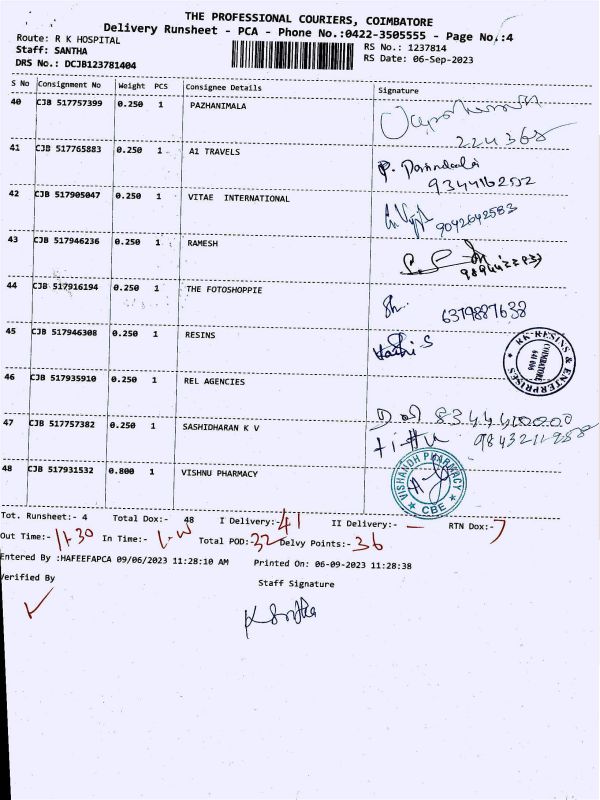 THE PROFESSIONAL COURIERS, COIMBATORE
Delivery Runsheet - PCA - Phone No.:0422-3505555 - Page No.:4
Route: R K HOSPITAL
RS No.: 1237814
Staff: SANTHA
RS Date: 06-Sep-2023
DRS No.: DCJB123781404
S No Consignment No Weight PCS Consignee Details Signature
40 CJB 517757399 0.250 1 PAZHANIMALA
224368
41 CJB 517765883 0.250 1 A1 TRAVELS
9344162552
42 CJB 517905047 0.250 1 VITAE INTERNATIONAL
9042642583
43 CJB 517946236 0.250 1 RAMESH
44 CJB 517916194 0.250 1 THE FOTOSHOPPIE
6379887638
45 CJB 517946308 0.250 1 RESINS
RK-RESINS & ENTERPRISES
COIMBATORE
641 006
46 CJB 517935910 0.250 1 REL AGENCIES
8344400000
47 CJB 517757382 0.250 1 SASHIDHARAN K V
48 CJB 517931532 0.800 1 VISHNU PHARMACY
VISHANDH PHARMACY
CBE
Tot. Runsheet:- 4 Total Dox:- 48 I Delivery:- 41 II Delivery:- — RTN Dox:- 7
Out Time:- 11.30 In Time:- Total POD:- 32 Delvy Points:- 36
Entered By :HAFEEFAPCA 09/06/2023 11:28:10 AM Printed On: 06-09-2023 11:28:38
Verified By Staff Signature
K Santha